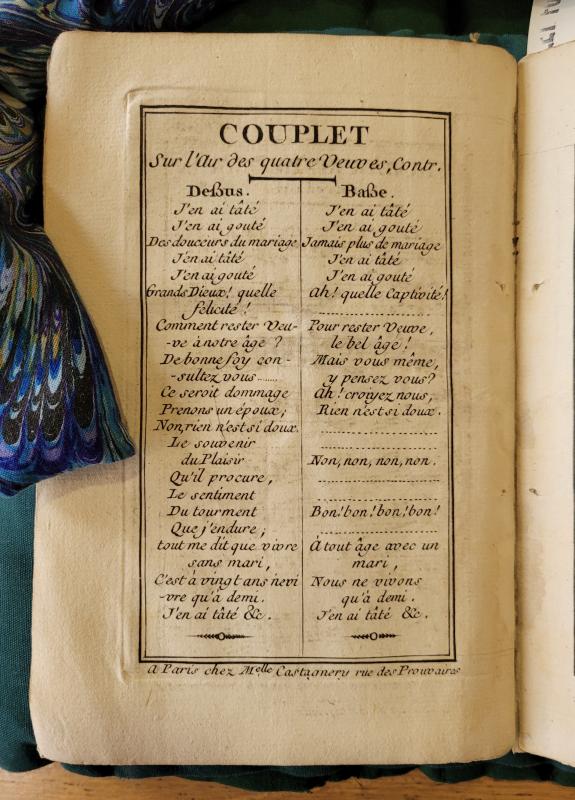 COUPLET
Sur l'Air des quatre Veuves, Contr.
Deßus.
J'en ai tâté
J'en ai gouté
Des douceurs du mariage
J'en ai tâté
J'en ai gouté
Grands Dieux! quelle
félicité!
Comment rester Veu-
-ve à notre âge ?
De bonne foy con-
-sultez vous........
Ce seroit dommage
Prenons un époux;
Non, rien n'est si doux.
Le souvenir
du Plaisir
Qu'il procure,
Le sentiment
Du tourment
Que j'endure;
tout me dit que vivre
sans mari,
C'est à vingt ans ne vi
-vre qu'à demi.
J'en ai tâté &c.
Baße.
J'en ai tâté
J'en ai gouté
Jamais plus de mariage
J'en ai tâté
J'en ai gouté
Ah! quelle Captivité!
Pour rester Veuve,
le bel âge!
Mais vous même,
y pensez vous?
Ah! croiyez nous,
Rien n'est si doux.
Non, non, non, non.
Bon! bon! bon! bon!
À tout âge avec un
mari,
Nous ne vivons
qu'à demi.
J'en ai tâté &c.
a Paris chez Melle Castagnery rue des Prouvaires